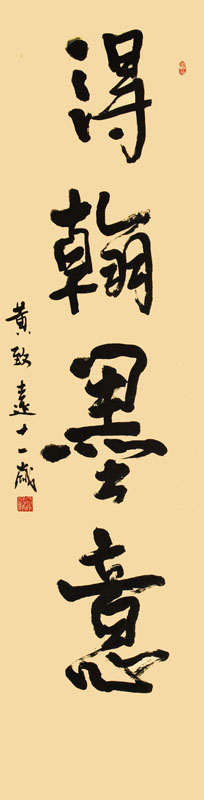 得翰墨意
黄致远十一歲